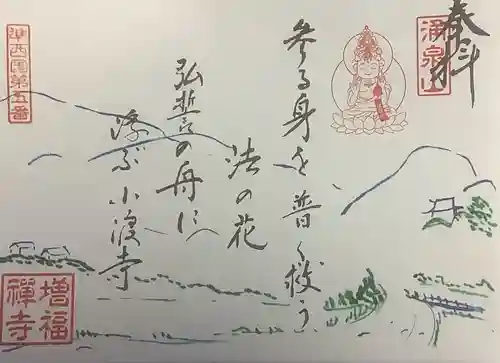 奉拝
涌泉山
参る身を普く救う
法の花
弘誓の舟に
浮ぶ小渡寺
準西国第五番
増福禅寺